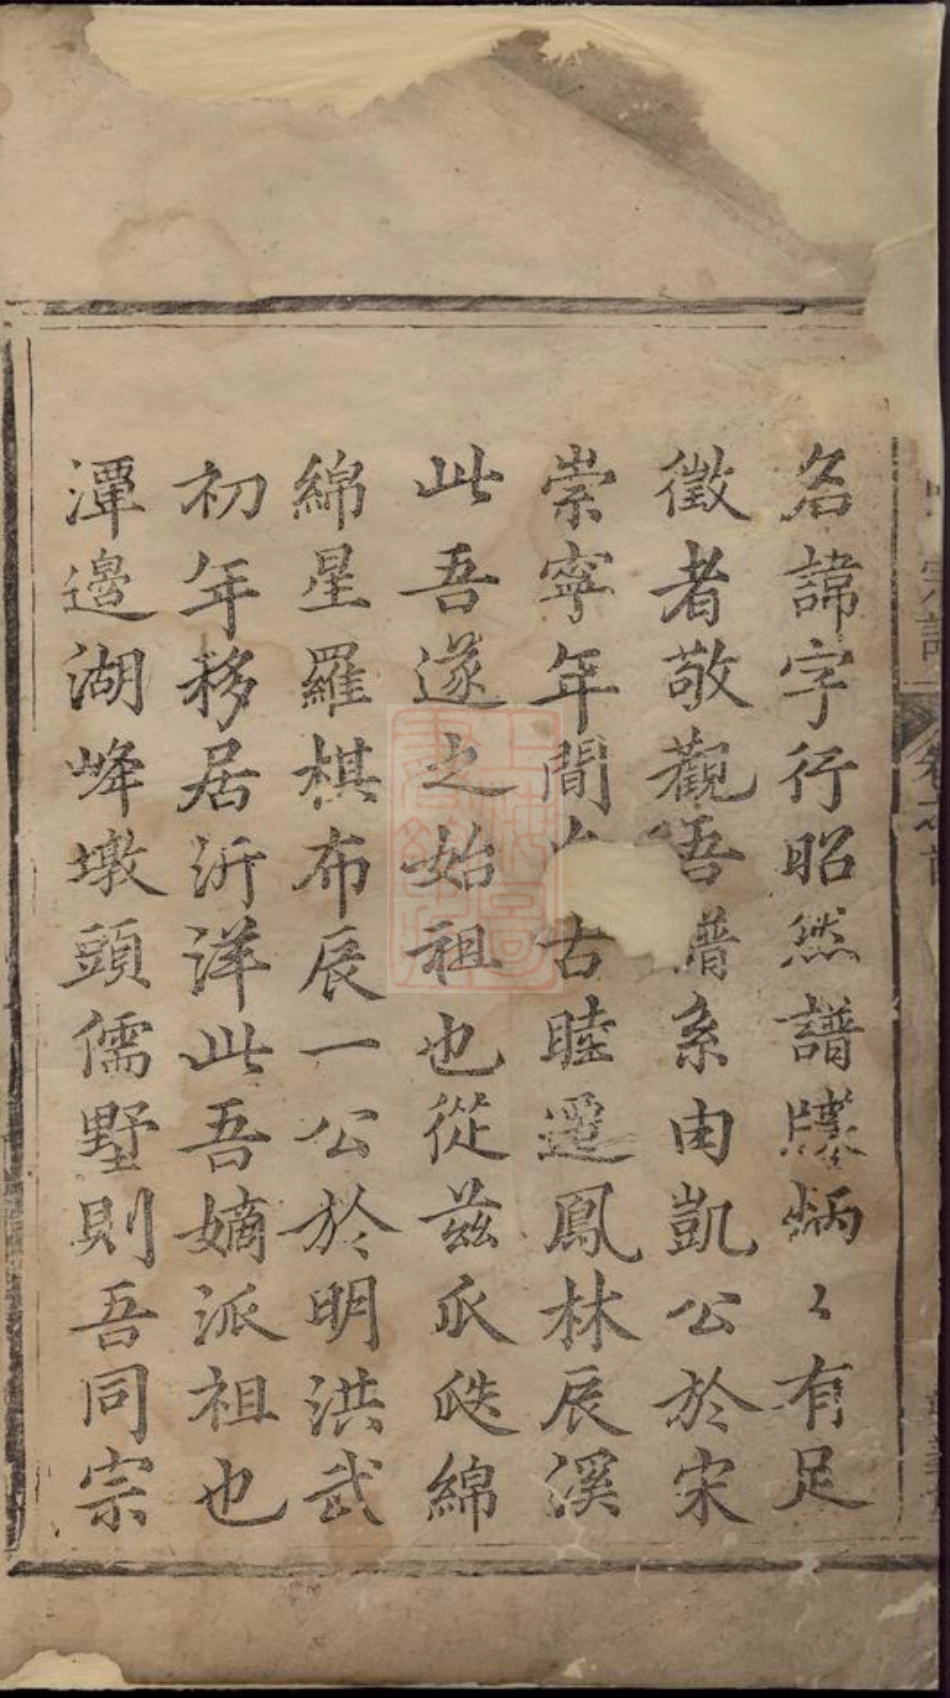 名諱字行昭然譜牒炳〻有足
徵者敬觀吾譜系由凱公於宋
崇寧年間古睦遷鳳林辰溪
此吾遂之始祖也從茲瓜瓞綿
綿星羅棋布辰一公於明洪武
初年移居沂洋此吾嫡派祖也
潭邊湖峰墩頭儒墅則吾同宗
卷之首